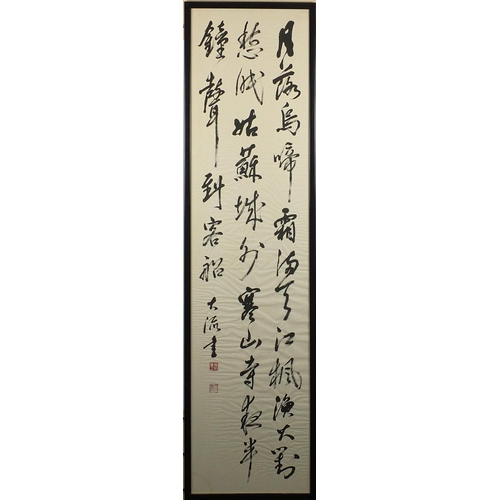 月落烏啼霜滿天江楓漁火對
愁眠姑蘇城外寒山寺夜半
鐘聲到客船
大流書